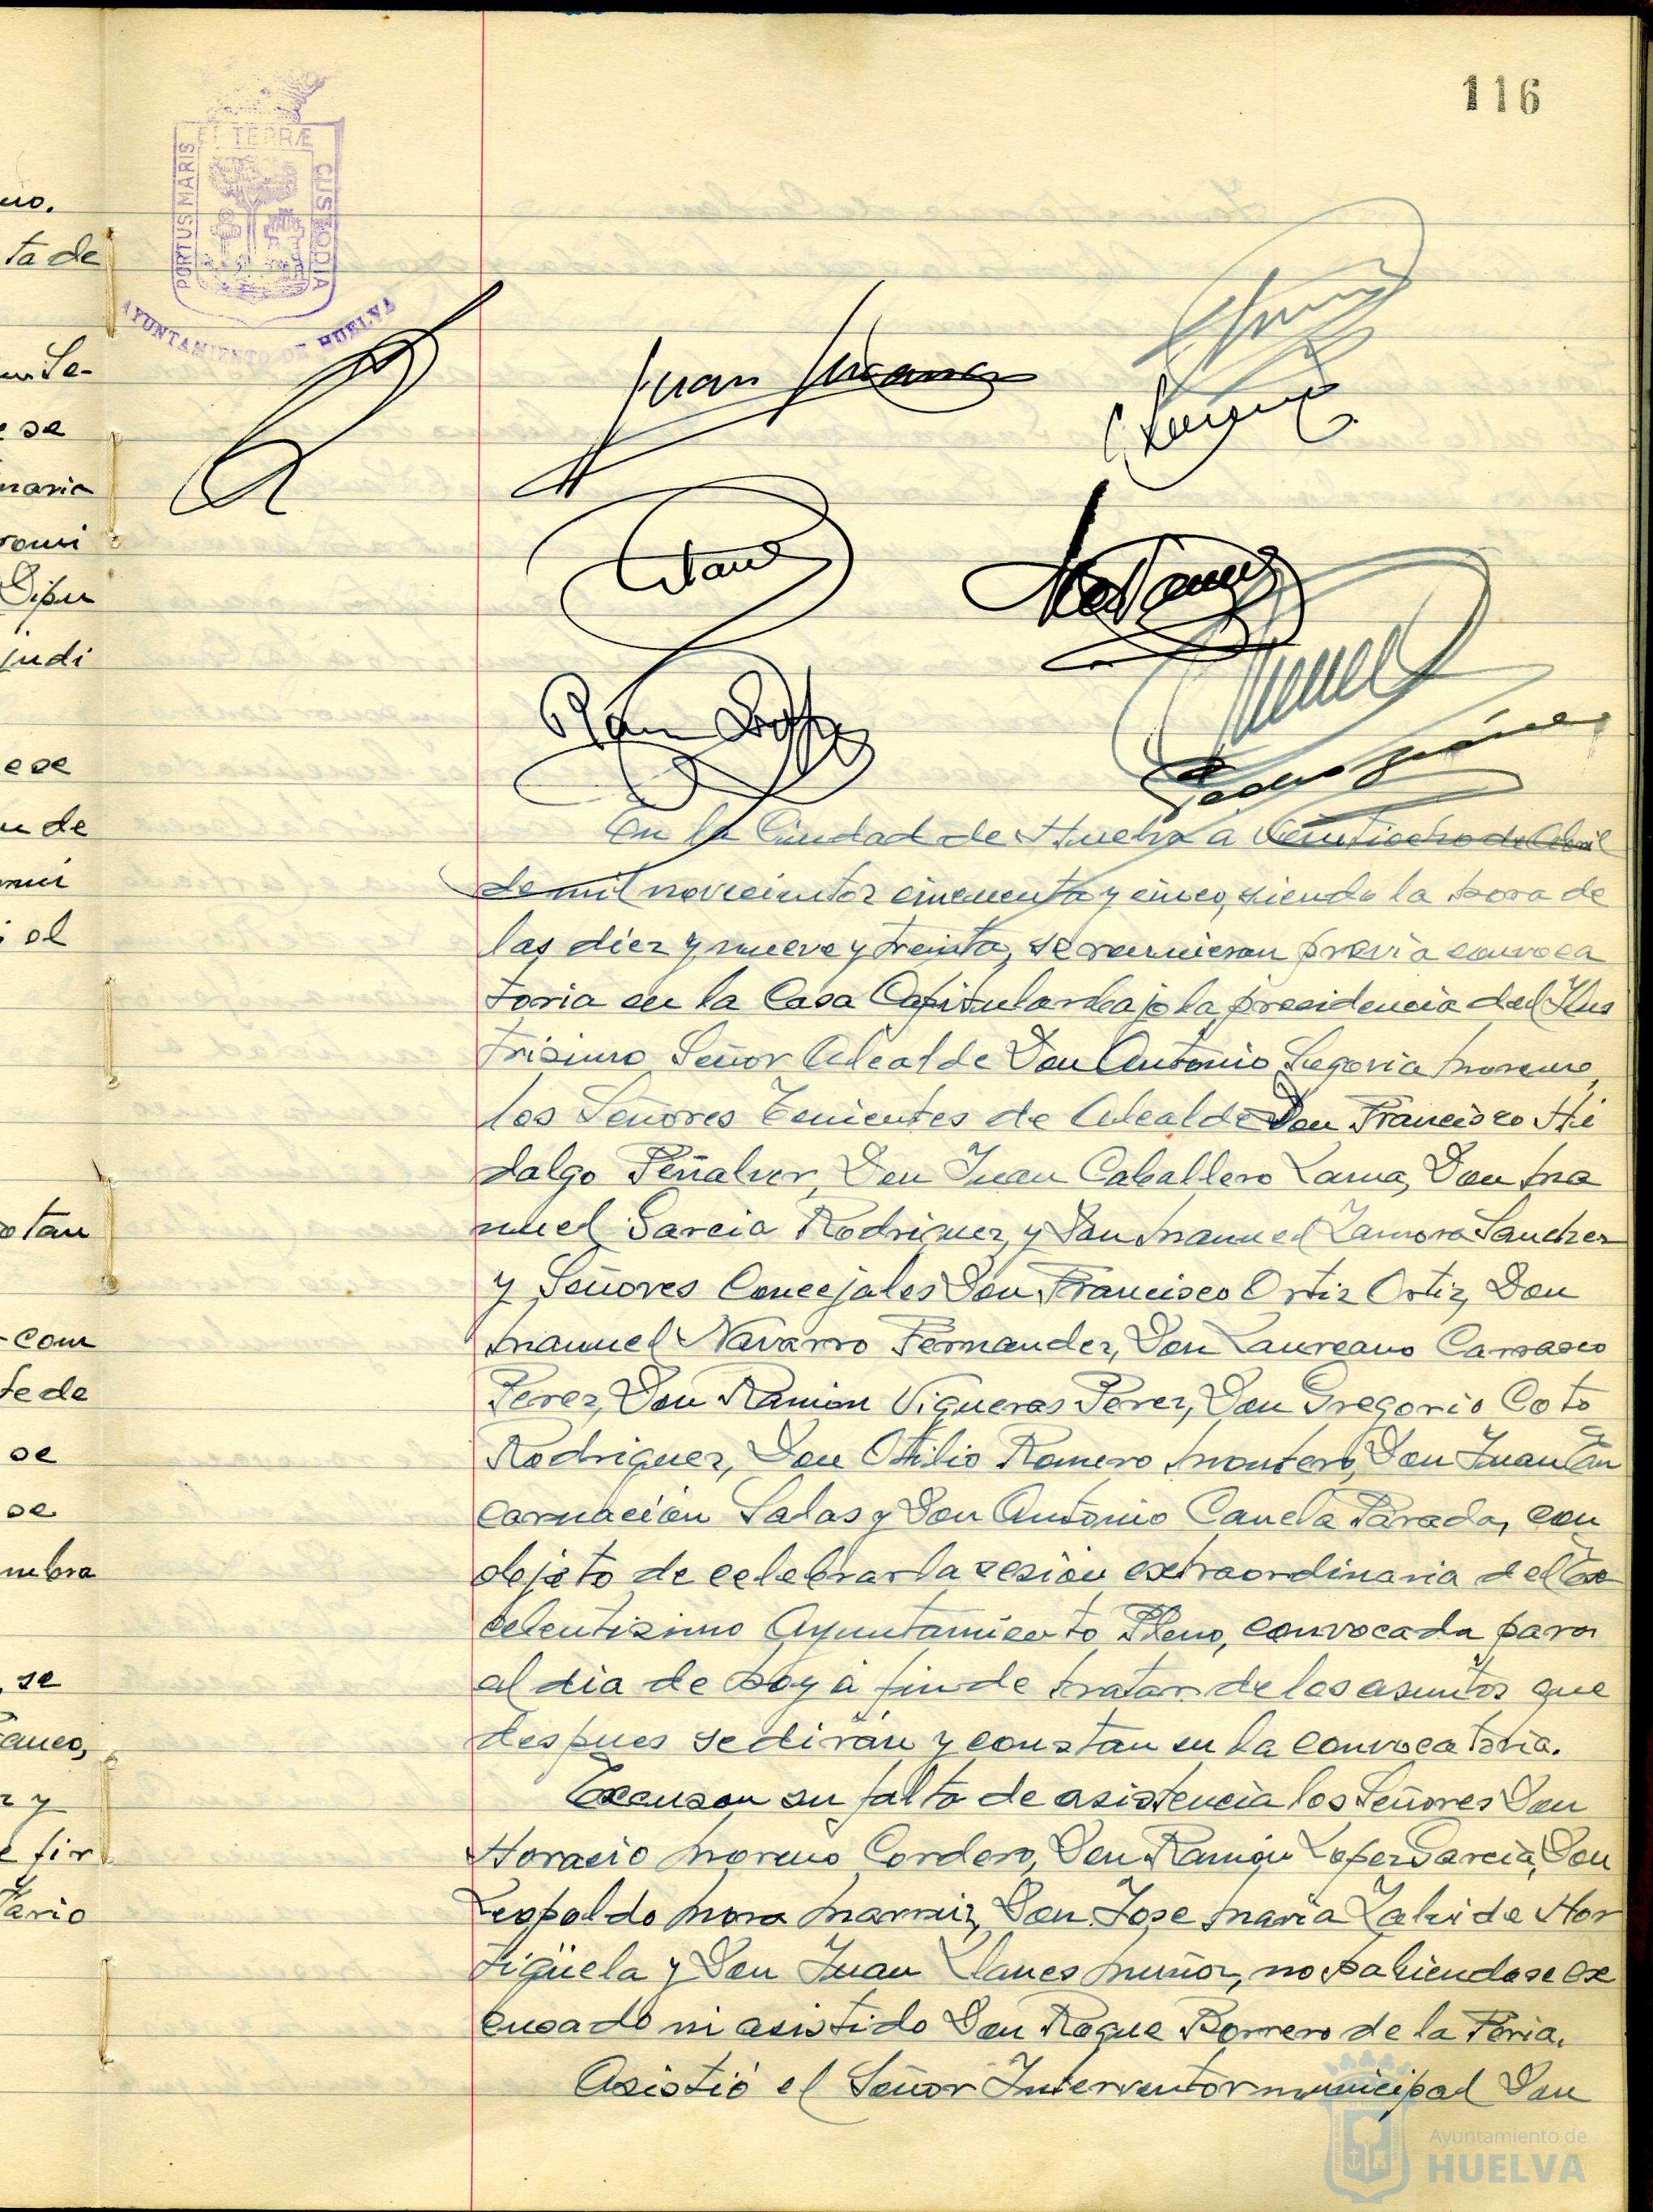 116
ET TERRÆ
PORTUS MARIS
CUSTODIA
AYUNTAMIENTO DE HUELVA
no.
ta de
se
naria
Dipu
judi
ese
de
el
tan
com
te de
se
se
mbra
se
y
fir
tario
Juan
Ramón López
En la Ciudad de Huelva a Veintiocho de Abril
de mil novecientos cincuenta y cinco, siendo la hora de
las diez y nueve y treinta, se reunieron previa convoca
toria en la Casa Capitular bajo la presidencia del Ilus
trisimo Señor Alcalde Don Antonio Segovia Moreno,
los Señores Tenientes de Alcalde Don Francisco Hi
dalgo Peñalver, Don Juan Caballero Lama, Don Ma
nuel Garcia Rodriguez, y Don Manuel Zamora Sanchez
y Señores Concejales Don Francisco Ortiz Ortiz, Don
Manuel Navarro Fernandez, Don Laureano Carrasco
Perez, Don Ramon Vigueras Perez, Don Gregorio Coto
Rodriguez, Don Otilio Romero Montero, Don Juan En
carnación Salas y Don Antonio Canela Parada, con
objeto de celebrar la sesión extraordinaria del Ex
celentisimo Ayuntamiento Pleno, convocada para
el dia de hoy a fin de tratar de los asuntos que
despues se dirán y constan en la convocatoria.
Excusan su falta de asistencia los Señores Don
Horacio Moreno Cordero, Don Ramón Lopez Garcia, Don
Leopoldo Mora Don Jose Maria Zalvide Hor
tigüela y Don Juan Llanes Muñoz, no habiendose ex
cusado ni asistido Don Roque Borrero de la Feria.
Asistió el Señor Interventor municipal Don
Ayuntamiento de
HUELVA